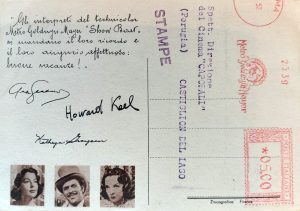 "Gli interpreti del technicolor
Metro Goldwyn Mayer "Show Boat",
vi mandano il loro ricordo e
il loro augurio affettuoso:
buone vacanze!..
Ava Gardner
Howard Keel
Kathryn Grayson
STAMPE
Spett. Direzione
del Cinema "CAPORALI"
(Perugia)
CASTIGLION DEL LAGO
Metro Goldwyn Mayer
≡0500